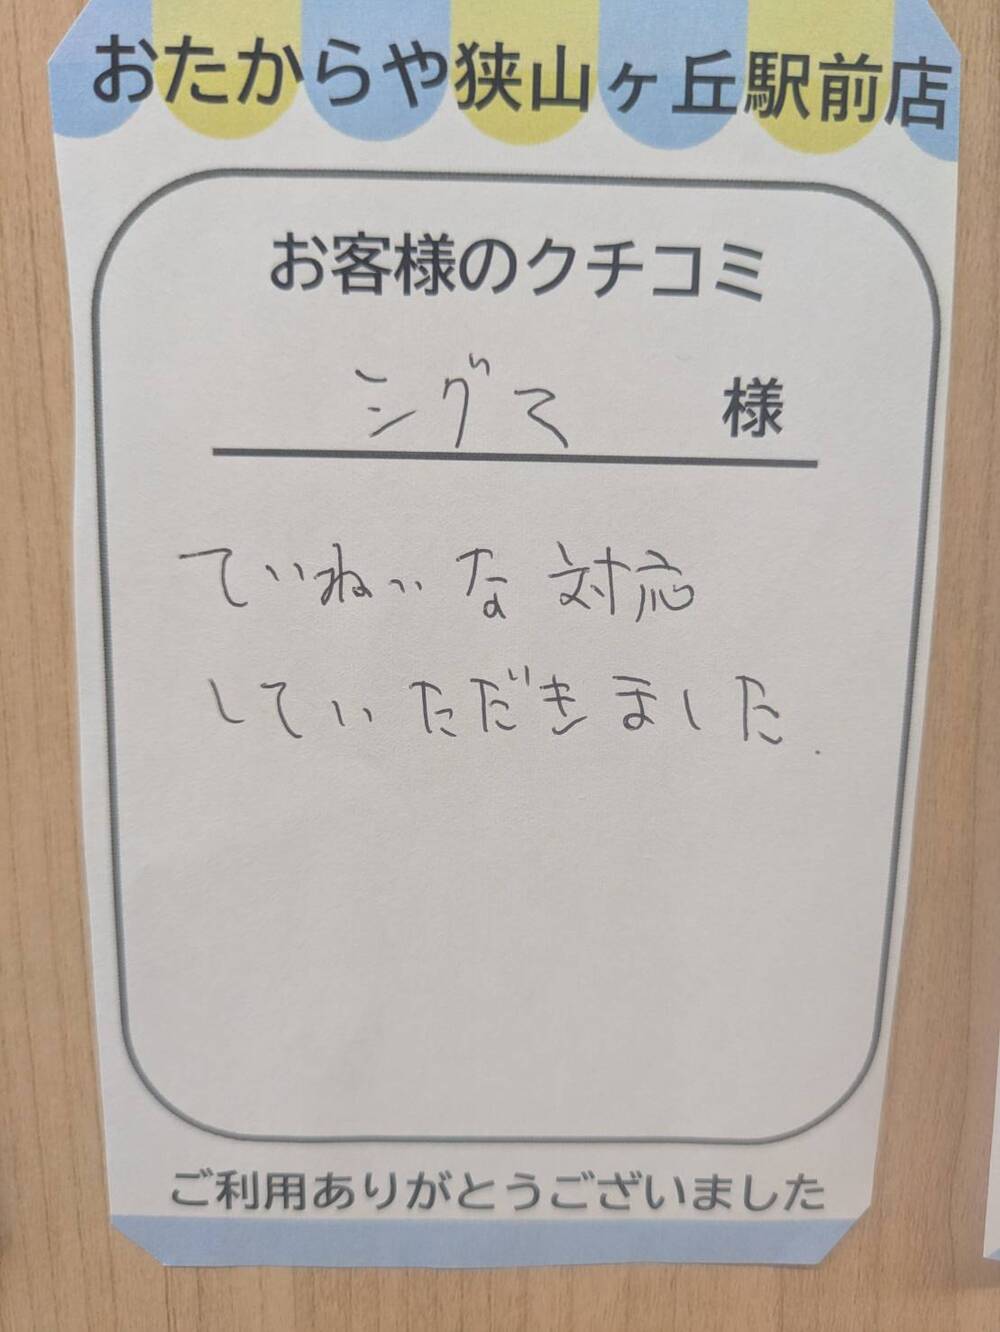 おたからや狭山ヶ丘駅前店
お客様のクチコミ
シグマ 様
ていねいな対応
していただきました.
ご利用ありがとうございました